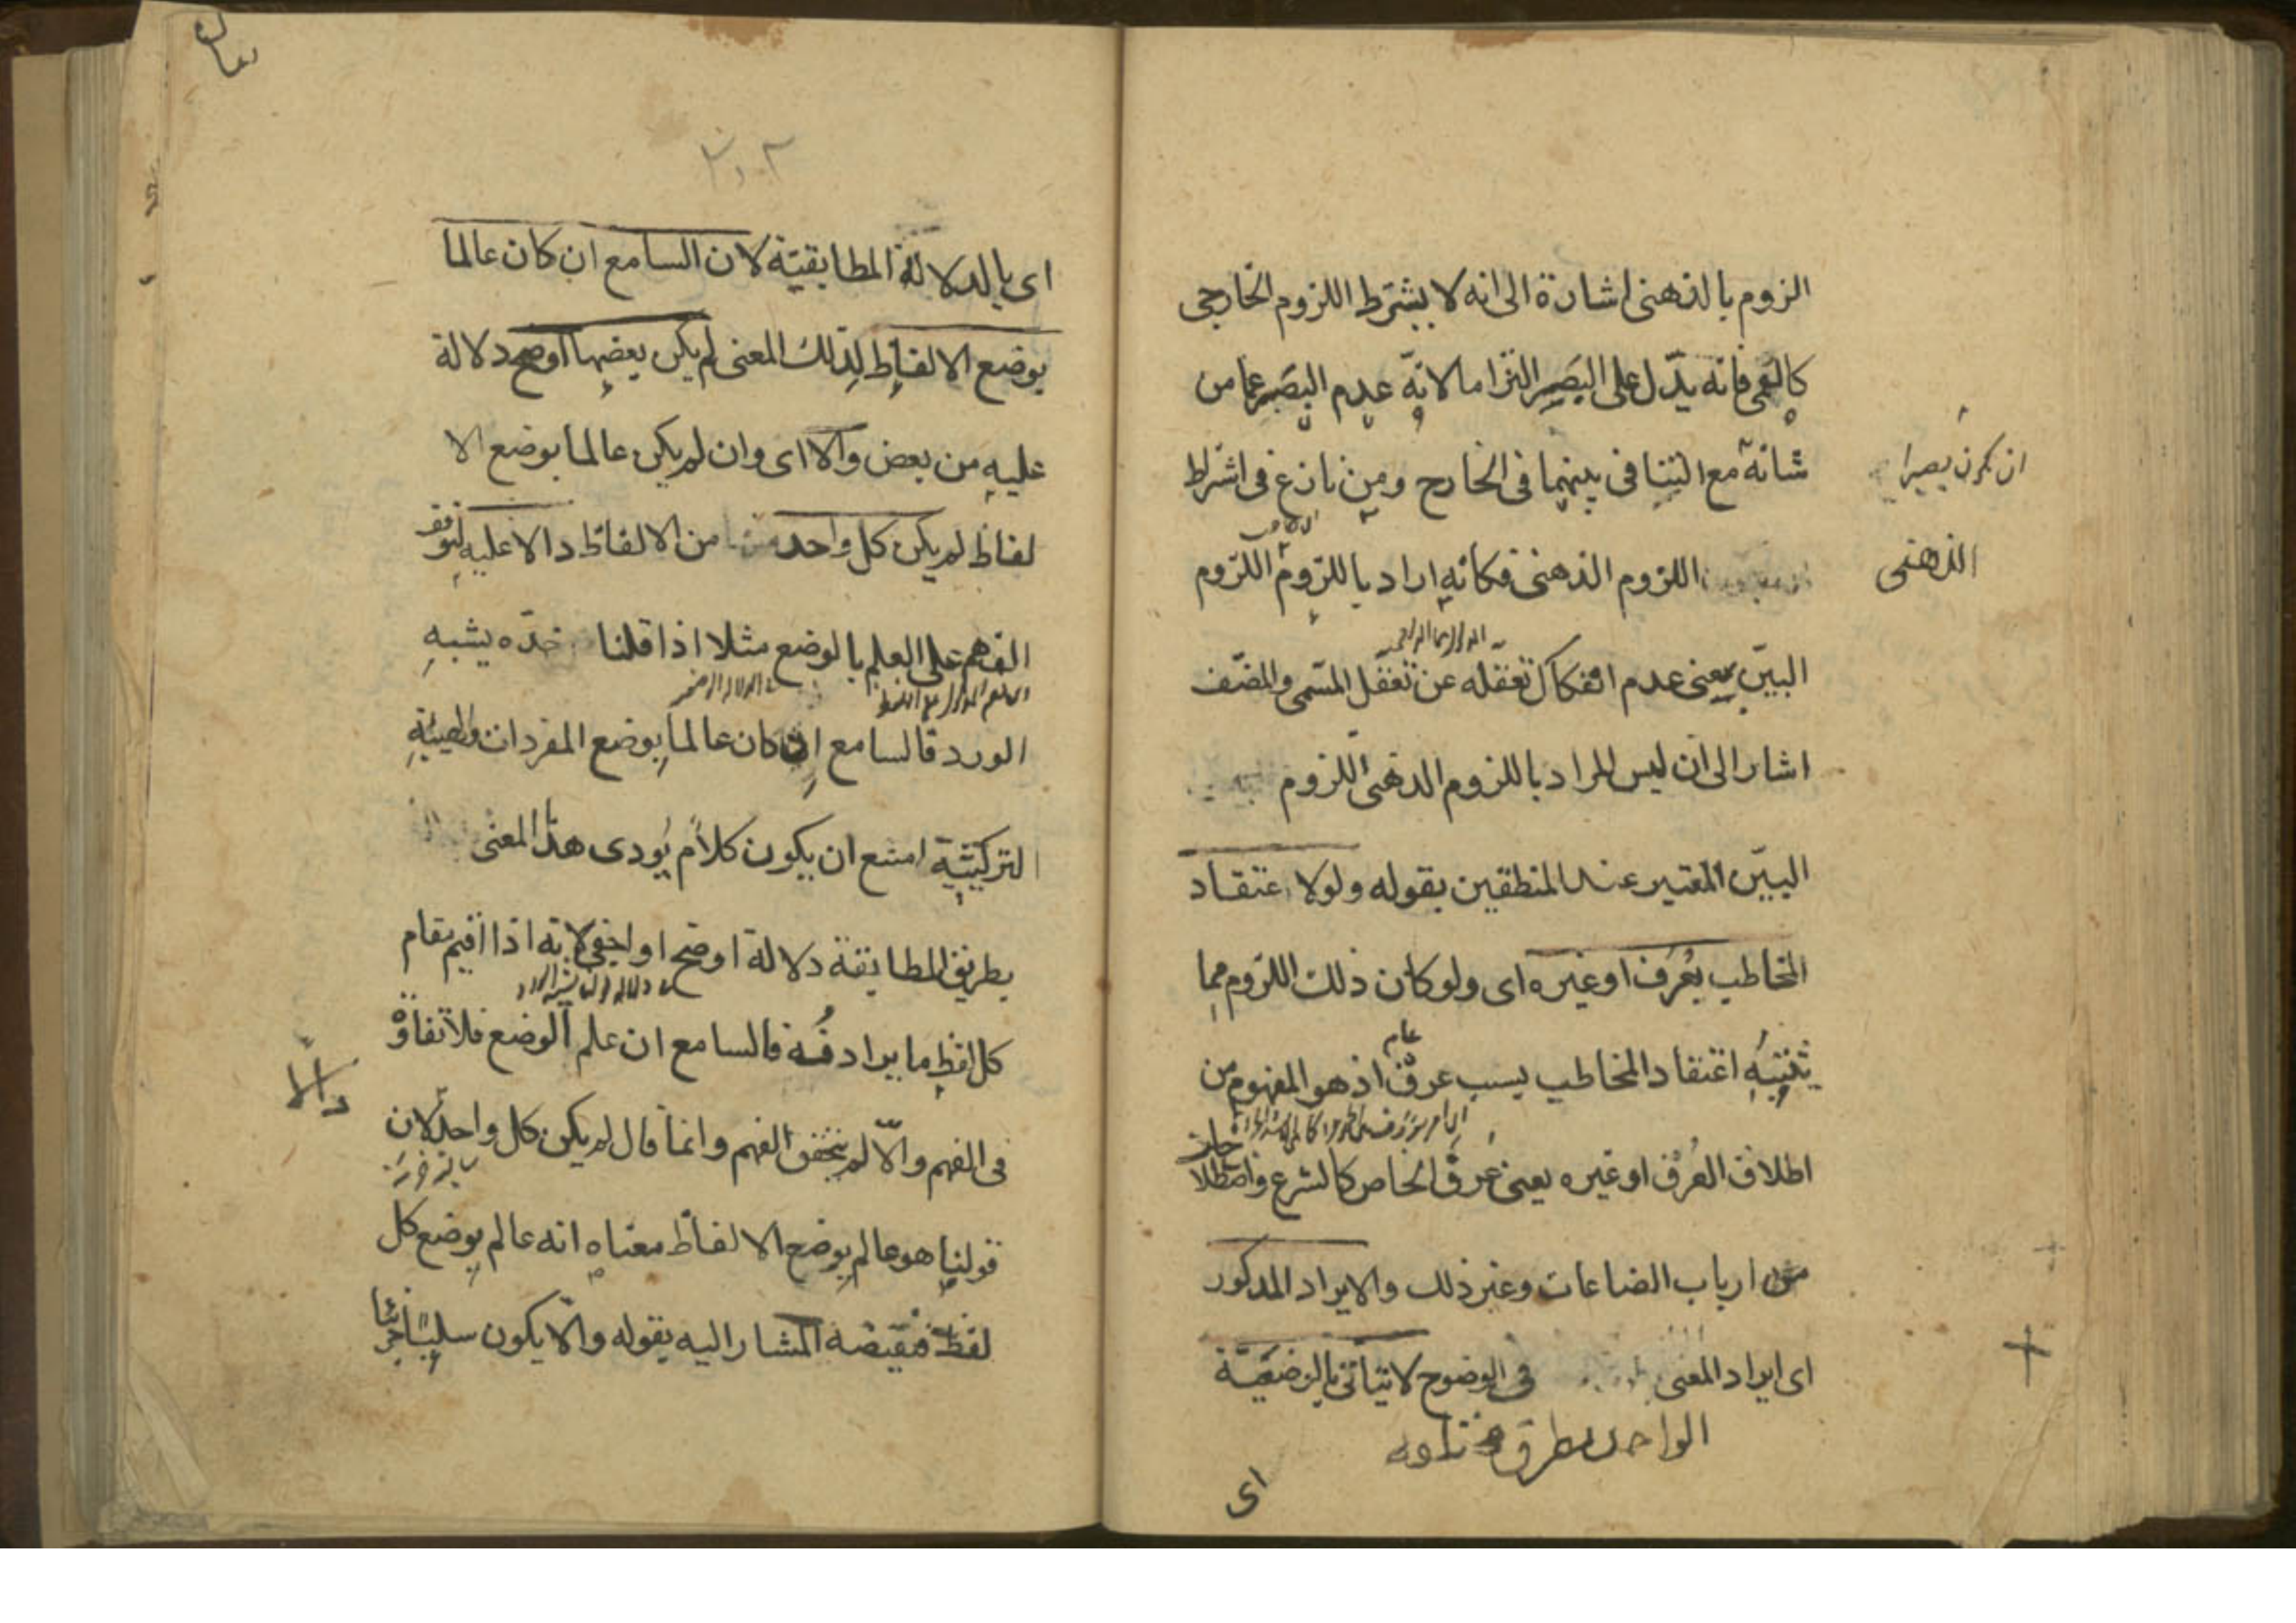 الزوم بالذهنى اشارة الى انه لا يشترط اللزوم الخارجى
كالعمى فانه يدّل على البَصَر التزاما لانّه عدم البَصَر عما من
شانه مع التنافى بينهما فى الخارح ومن نازع فى اشتراط
ان يكون بصيرا
اللزوم الذهنى فكانّه اراد باللزوم اللزوم
الذهنى
البيّن بمعنى عدم انفكاك تعقله عن تعقل المسّمى والمصّنف
اشار الى ان ليس المراد باللزوم الذهنى اللزوم
البيّن المعتبر عند المنطقين بقوله ولولا عتقاد
المخاطب بعُرَف اوغيره اى ولو كان ذلك اللزوم مما
يثبته اعتقاد المخاطب بسبب عرف
عام
اذ هو المفهوم من
اطلاق العُرْف اوغيره يعنى عُرفَ الخاص كالشرع واصطلا
حات
من ارباب الصناعات وغير ذلك والايراد المذكور
اى ايراد المعنى فى الوضوح لا يتأتى بالوضعيّة
الواحد بطرق مختلفة
اى
اى بالدلالة المطابقيّة لان السامع ان كان عالما
بوضع الالفاظ لذلك المعنى لم يكن بعضها اوضح دلالة
عليه من بعض والا اى وان لم يكن عالما بوضع الا
لفاظ لم يكن كل واحد من الالفاظ دالا عليه لتوقف
الفهم على العلم بالوضع مثلا اذا قلنا خدّه يشبه
الورد فالسامع ان كان عالما بوضع المفردات والهيئة
التركيبيّة امتنع ان يكون كلام يُودى هذا المعنى
بطريق المطابقة دلالة اوضح او اخفى لانه اذا اقيم مقام
كل لفظ ما يرادفُه فالسامع ان علم الوضع فلا تفاوة
فى الفهم والّا لم يتحقق الفهم وانما قال لم يكن كل واحد لان
دالا
قولنا هو عالم بوضع الالفاظ معناه انه عالم بوضع كل
لفظ فنقيضه المشار اليه بقوله والّا يكون سلبا جزئيا